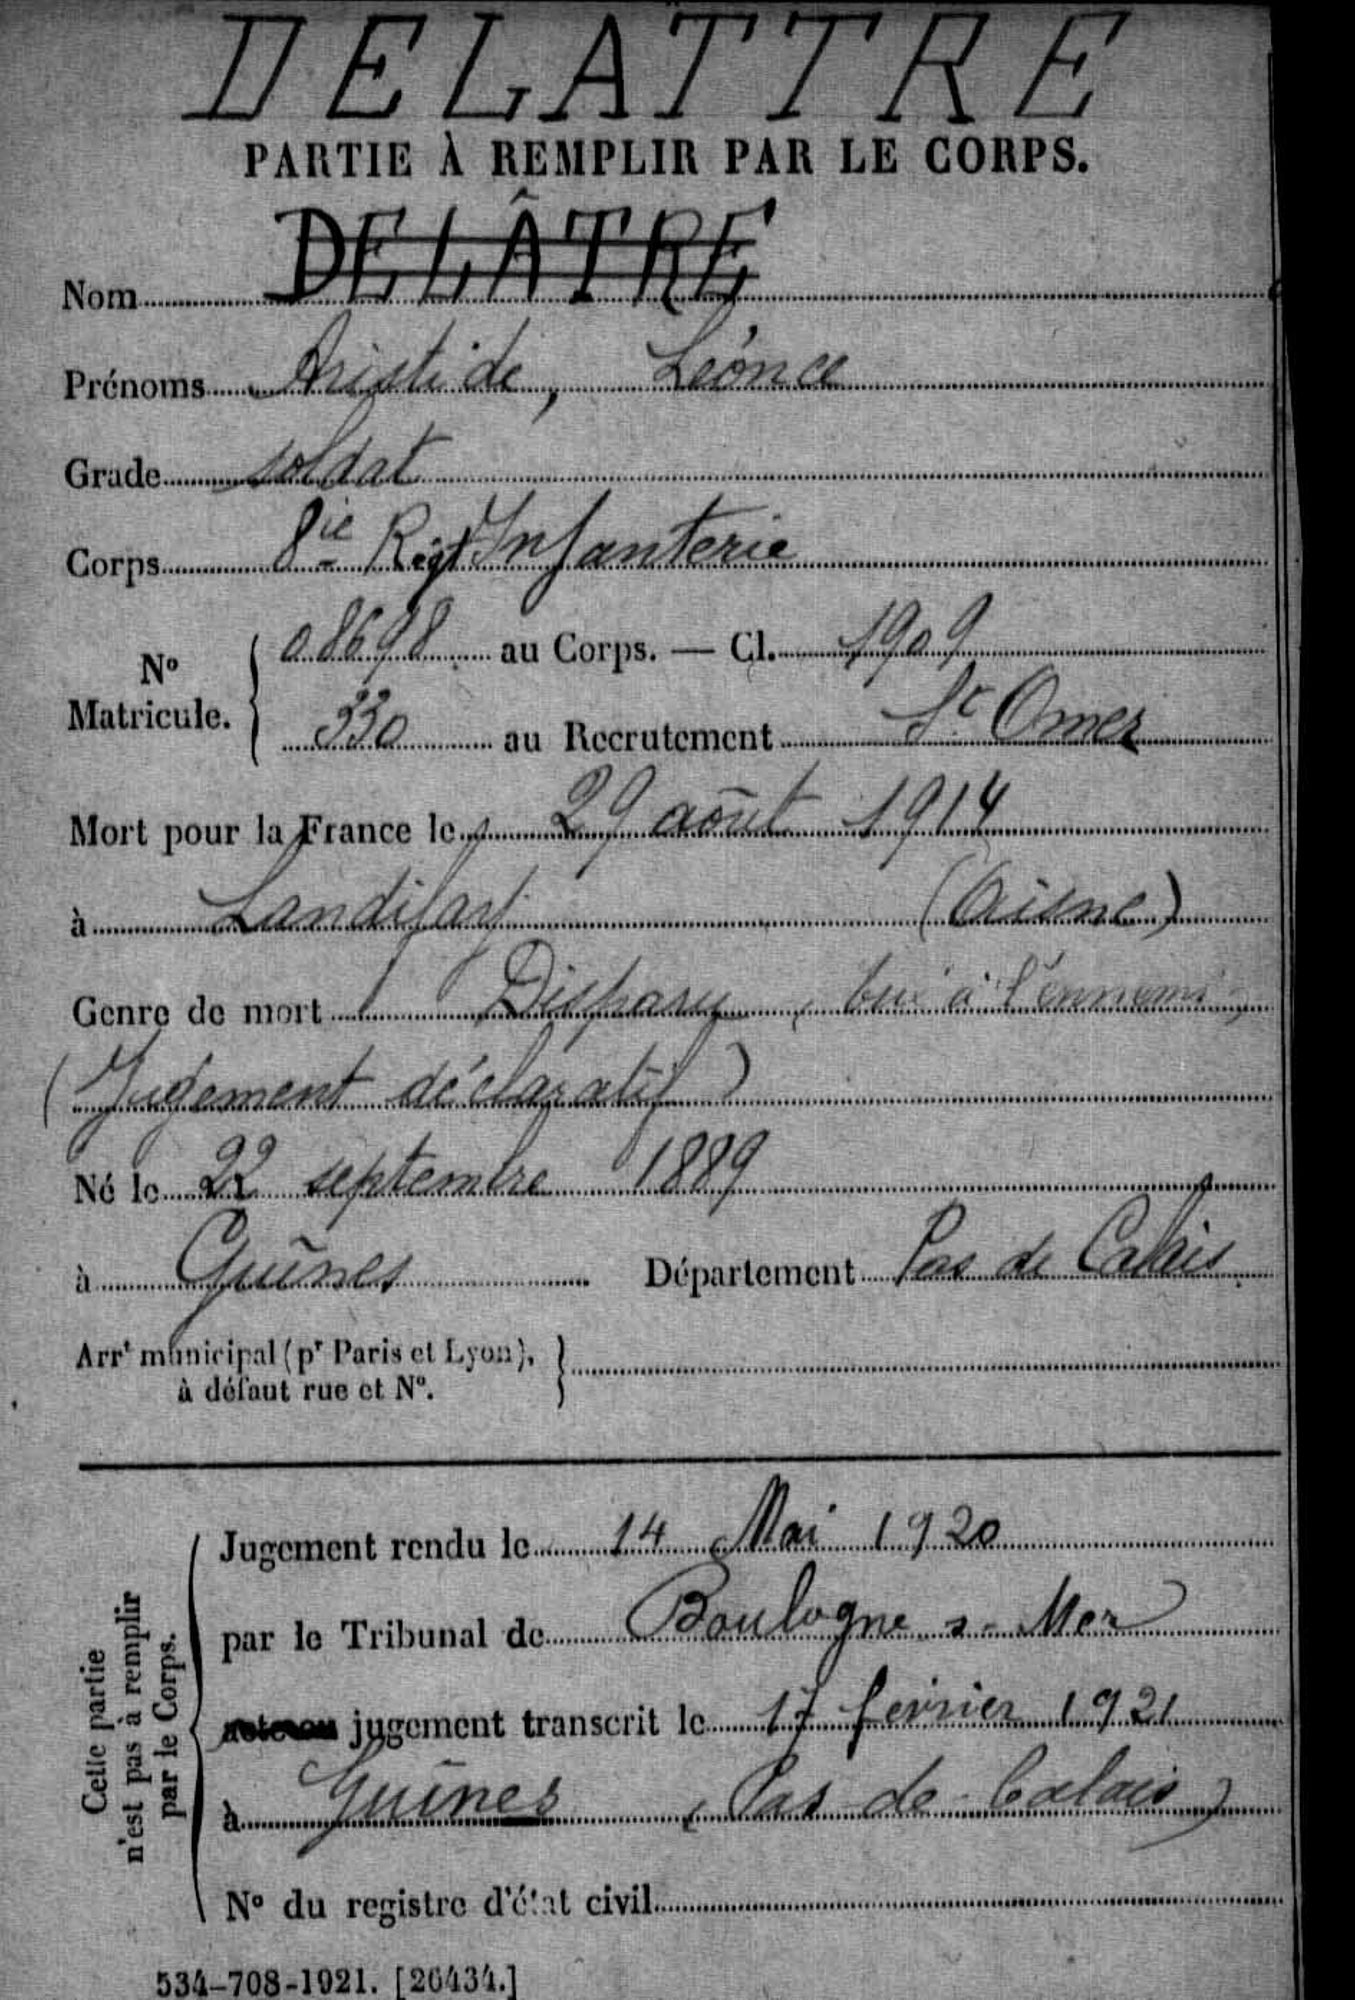 DELATTRE
PARTIE À REMPLIR PAR LE CORPS.
Nom DELÂTRE
Prénoms Aristide, Léonce
Grade soldat
Corps 8ie Regt Infanterie
No Matricule. { 08698 au Corps. — Cl. 1909
330 au Recrutement St. Omer
Mort pour la France le 29 août 1914
à Landifay (Aisne)
Genre de mort Disparu, tué à l'ennemi,
(Jugement déclaratif)
Né le 22 septembre 1889
à Guînes Département Pas de Calais
Arrt municipal (pr Paris et Lyon), }
à défaut rue et No.
Cette partie
n'est pas à remplir
par le Corps.
Jugement rendu le 14 Mai 1920
par le Tribunal de Boulogne s- Mer
acte ou jugement transcrit le 17 fevrier 1921
à Guînes (Pas-de-Calais)
No du registre d'état civil
534-708-1921. [26434.]